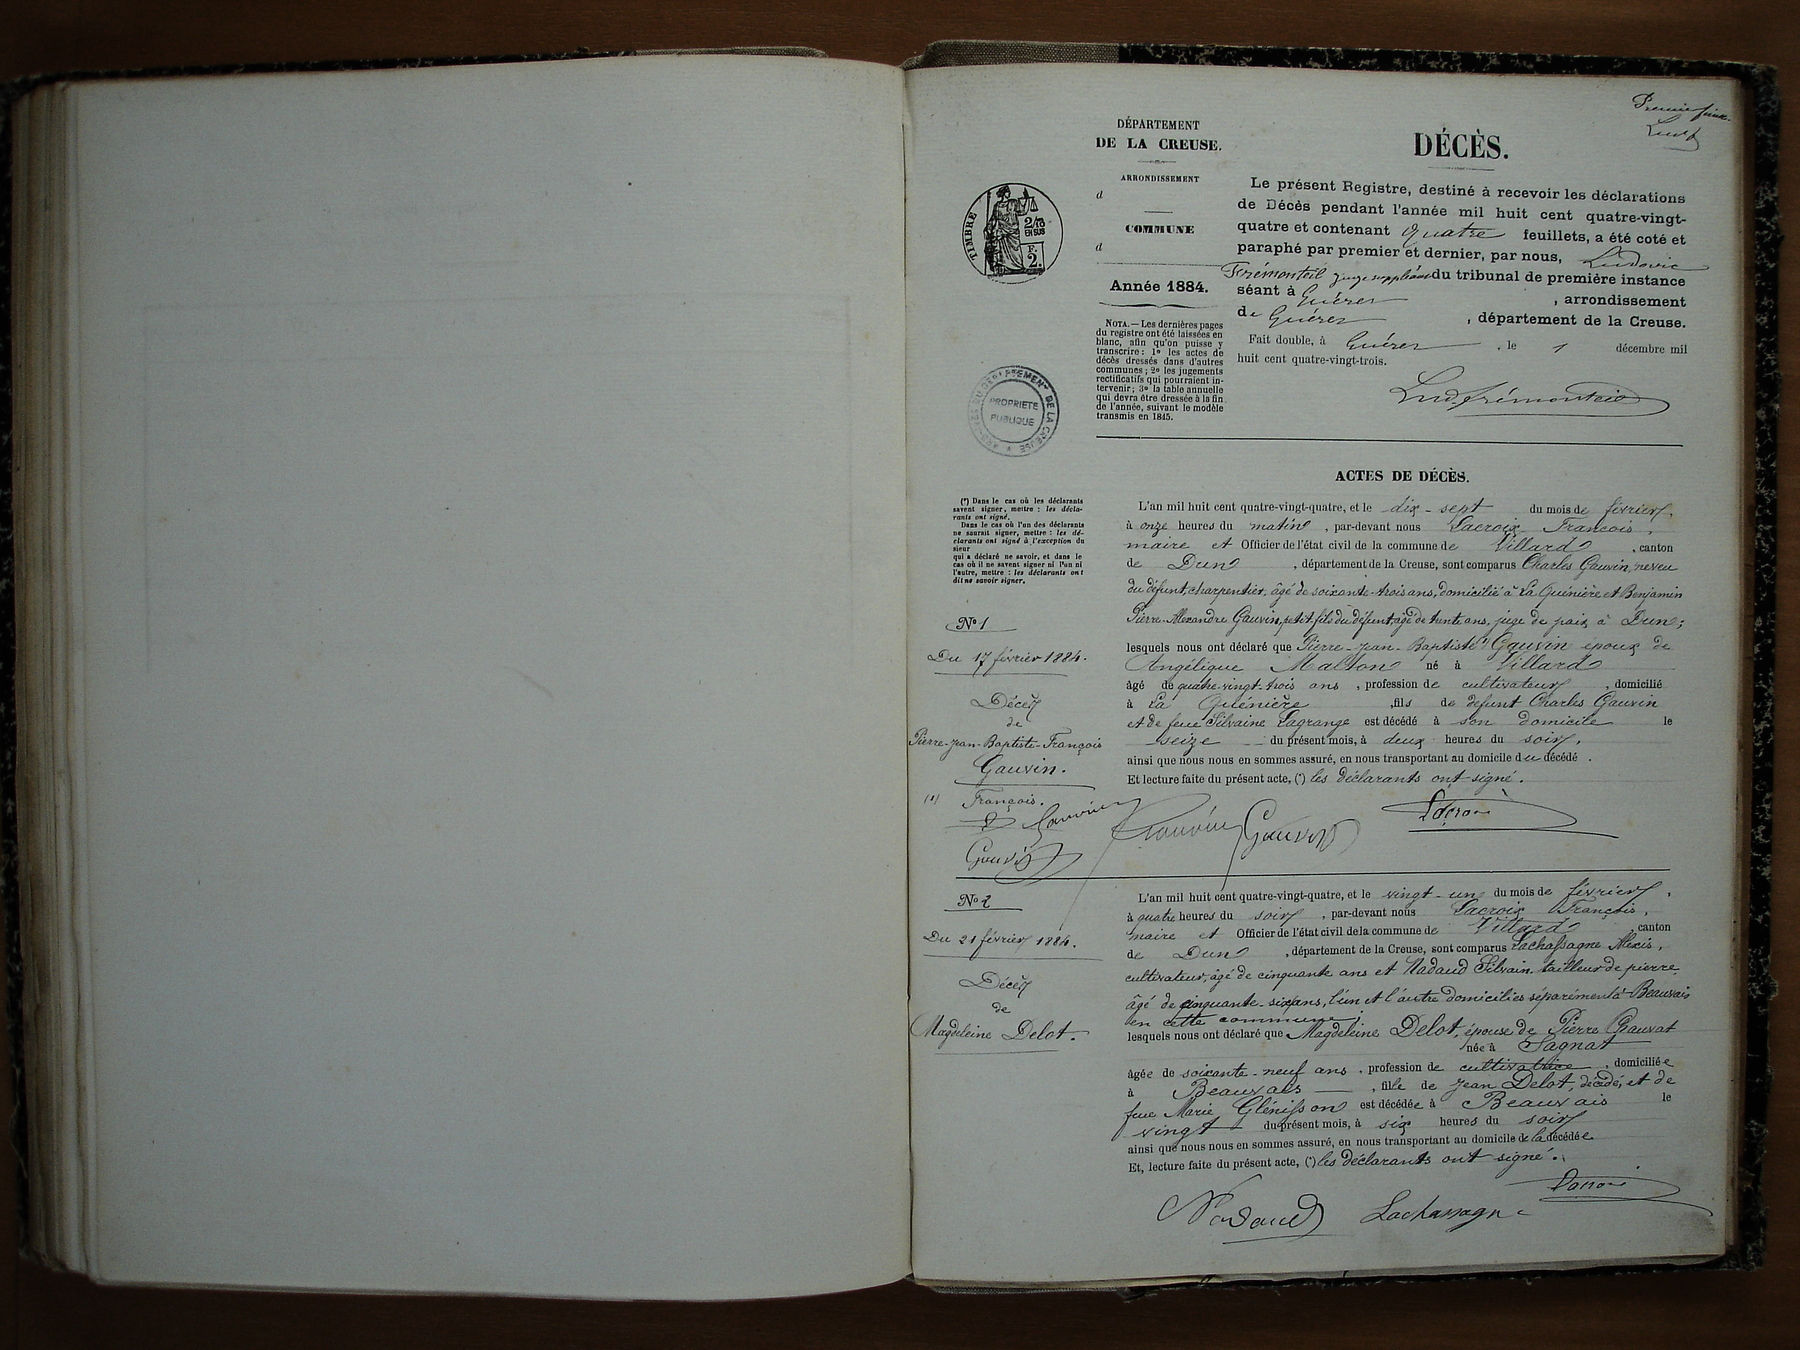 Premier feuil.
Lud f
DÉPARTEMENT
DE LA CREUSE.
ARRONDISSEMENT
d
COMMUNE
d
Année 1884.
NOTA. — Les dernières pages
du registre ont été laissées en
blanc, afin qu'on puisse y
transcrire : 1º les actes de
décès dressés dans d'autres
communes ; 2º les jugements
rectificatifs qui pourraient in-
tervenir ; 3º la table annuelle
qui devra être dressée à la fin
de l'année, suivant le modèle
transmis en 1845.
TIMBRE
2/10
EN SUS
F.
2.
ARCHIVES DU DÉPARTEMENT DE LA CREUSE
PROPRIÉTÉ
PUBLIQUE
DÉCÈS.
Le présent Registre, destiné à recevoir les déclarations
de Décès pendant l'année mil huit cent quatre-vingt-
quatre et contenant quatre feuillets, a été coté et
paraphé par premier et dernier, par nous, Ludovic
Frémonteil juge suppléant du tribunal de première instance
séant à Guéret , arrondissement
de Guéret , département de la Creuse.
Fait double, à Guéret , le 1 décembre mil
huit cent quatre-vingt-trois.
Lud frémonteil
ACTES DE DÉCÈS.
(*) Dans le cas où les déclarants
savent signer, mettre : les décla-
rants ont signé.
Dans le cas où l'un des déclarants
ne saurait signer, mettre : les dé-
clarants ont signé à l'exception du
sieur
qui a déclaré ne savoir, et dans le
cas où il ne savent signer ni l'un ni
l'autre, mettre : les déclarants ont
dit ne savoir signer.
Nº 1
Du 17 février 1884.
Décès
de
Pierre-Jean-Baptiste-François
Gauvin.
(1) François.
Gauvin
L'an mil huit cent quatre-vingt-quatre, et le dix-sept du mois de février,
à onze heures du matin , par-devant nous Lacroix François,
maire et Officier de l'état civil de la commune de Villard , canton
de Dun , département de la Creuse, sont comparus Charles Gauvin, neveu
du défunt, charpentier, âgé de soixante-trois ans, domicilié à La Guénière et Benjamin
Pierre-Alexandre Gauvin, petit fils du défunt, âgé de trente ans, juge de paix à Dun ;
lesquels nous ont déclaré que Pierre-Jean-Baptiste (1) Gauvin époux de
Angélique Malton né à Villard
âgé de quatre-vingt-trois ans , profession de cultivateur , domicilié
à La Guénière , fils de défunt Charles Gauvin
et de feue Silvaine Lagrange est décédé à son domicile le
seize du présent mois, à deux heures du soir,
ainsi que nous nous en sommes assuré, en nous transportant au domicile du décédé .
Et lecture faite du présent acte, (*) les déclarants ont signé.
Gauvin Gauvin Lacroix
Gauvin
Nº 2
Du 21 février 1884.
Décès
de
Magdeleine Delot.
L'an mil huit cent quatre-vingt-quatre, et le vingt-un du mois de février,
à quatre heures du soir , par-devant nous Lacroix François,
maire et Officier de l'état civil de la commune de Villard canton
de Dun , département de la Creuse, sont comparus Lachassagne Alexis,
cultivateur, âgé de cinquante ans et Nadaud Silvain, tailleur de pierre,
âgé de cinquante-six ans, l'un et l'autre domiciliés séparément à Beauvais
en cette commune ;
lesquels nous ont déclaré que Magdeleine Delot, épouse de Pierre Gauvat
née à Sagnat
âgée de soixante-neuf ans , profession de cultivatrice , domiciliée
à Beauvais , fille de Jean Delot décédé, et de
feue Marie Glénisson est décédée à Beauvais le
vingt du présent mois, à six heures du soir
ainsi que nous nous en sommes assuré, en nous transportant au domicile de la décédée
Et, lecture faite du présent acte, (*) les déclarants ont signé.
Lacroix
Nadaud Lachassagne